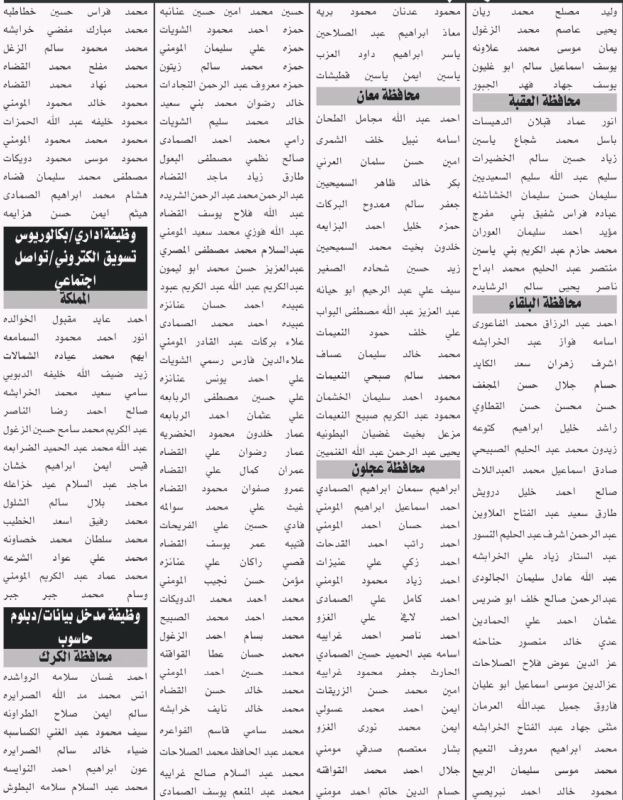 وليد مصلح محمد ريان
يحيى عاصم محمد الزغول
يمان موسى محمد علاونه
يوسف اسماعيل سالم ابو غليون
يوسف جهاد فهد الجبور
محافظة العقبة
انور عماد قبلان الدهيسات
باسل محمد شجاع ياسين
زياد حسين سالم الخضيرات
سليم عبد الله سليم السعيديين
سليمان حسن سليمان الخشاشنه
عباده فراس شفيق بني مفرج
مؤيد احمد سليمان العوران
محمد حازم عبد الكريم بني ياسين
منتصر عبد الحليم محمد ابداح
ناصر يحيى سالم الرشايده
محافظة البلقاء
احمد عبد الرزاق محمد الفاعوري
اسامه فواز عبد الخرابشه
اشرف زهران سعد الكايد
حسام جلال حسن المجغف
حسن محسن حسن القطاوي
راشد خليل ابراهيم كتوعه
زيدون محمد عبد الحليم الصبيحي
صادق اسماعيل محمد العبداللات
صالح احمد خليل درويش
طارق سعيد عبد الفتاح العلاوين
عبد الرحمن اشرف عبد الحليم النسور
عبد الستار زياد علي الخرابشه
عبد الله عادل سليمان الجالودي
عبدالرحمن صالح خلف ابو ضريس
عثمان احمد علي الحمادين
عدي خالد منصور حناحنه
عز الدين عوض فلاح الصلاحات
عزالدين موسى اسماعيل ابو عليان
فاروق جميل عبدالله العرمان
مثنى جهاد عبد الفتاح الخرابشه
محمد ابراهيم معروف النعيم
محمد موسى سليمان الربيع
محمود خالد احمد نبريصي
محمود عدنان محمود بريه
معاذ ابراهيم عبد الصلاحين
ياسر ابراهيم داود العزب
ياسين ايمن ياسين قطيشات
محافظة معان
احمد عبد الله مجامل الطحان
اسامه نبيل خلف الشمري
امين حسن سلمان العرني
بكر خالد ظاهر السميحيين
جعفر سالم ممدوح البركات
حمزه خليل احمد البزايعه
خلدون بخيت محمد السميحيين
زيد حسين شحاده الصغير
سيف علي عبد الرحيم ابو حيانه
عبد العزيز عبد الله مصطفى البواب
علي خلف حمود النعيمات
محمد خالد سليمان عساف
محمد سالم صبحي النعيمات
محمود احمد سليمان الخشمان
محمود عبد الكريم صبيح النعيمات
مزعل بخيت غضيان البطونيه
يحيى عبد الرحمن عبد الله الغنميين
محافظة عجلون
ابراهيم سمعان ابراهيم الصمادي
احمد اسماعيل ابراهيم المومني
احمد حسان احمد المومني
احمد راتب احمد القدحات
احمد زكي علي عنيزات
احمد زياد محمود المومني
احمد كامل علي الصمادي
احمد لافي علي الغزو
احمد ناصر احمد غرايبه
اسامه عبد الحميد حسين الصمادي
الحارث جعفر محمود غرايبه
امين محمد حسن الزريقات
ايمن احمد محمد عسولي
ايمن محمد نوري الغزو
بشار معتصم صدقي مومني
جلال احمد محمد القواقنه
حسام الدين حاتم احمد مومني
حسين محمد امين حسين عنانبه
حمزه احمد محمود الشويات
حمزه علي سليمان المومني
حمزه محمد سالم زيتون
حمزه معروف عبد الرحمن النجادات
خالد رضوان محمد بني سعيد
خالد محمد سليم الشويات
رامي محمد احمد الصمادي
صالح نظمي مصطفى البعول
طارق زياد ماجد القضاه
عبد الرحمن محمد عبد الرحمن الشريده
عبد الله فلاح يوسف القضاه
عبد الله فوزي محمد سعيد المومني
عبدالسلام محمد مصطفى المصري
عبدالعزيز حسن محمد ابو ليمون
عبدالكريم عبد الله عبد الكريم عبود
عبيده احمد حسان عنانزه
عبيده احمد محمد الصمادي
علاء بركات عبد القادر المومني
علاءالدين فارس رسمي الشويات
علي احمد يونس عنانزه
علي حسين مصطفى الربابعه
علي عثمان احمد الربابعه
عمار خلدون محمود الخضريه
عمار رضوان علي القضاه
عمران كمال علي القضاه
عمرو صفوان محمود القضاه
غيث علي محمد سوالمه
فادي حسين علي الفريحات
قتيبه عمر يوسف القضاه
قصي راكان علي عنانزه
مؤمن حسن نجيب المومني
محمد احمد محمد الدويكات
محمد احمد محمد الصبيح
محمد بسام احمد الزغول
محمد حسان عطا القواقنه
محمد حسين احمد المومني
محمد خالد حسن القضاه
محمد خالد نايف خرابشه
محمد سامي قاسم الفواعره
محمد عبد الحافظ محمد الصلاحات
محمد عبد السلام صالح غرايبه
محمد عبد المنعم يوسف الصمادي
محمد فراس حسين خطاطبه
محمد مبارك مفضي خرابشه
محمد محمود سالم الزغل
محمد مفلح محمد القضاه
محمد نهاد محمد القضاه
محمود خالد محمود المومني
محمود خليفه عبد الله الحمزات
محمود محمد محمود المومني
محمود موسى محمود دويكات
مصطفى محمد سليمان قضاه
هشام محمد ابراهيم الصمادي
هيثم ايمن حسن هزايمه
وظيفة اداري/بكالوريوس
تسويق الكتروني/تواصل
اجتماعي
المملكة
احمد عايد مقبول الخوالده
انور احمد محمود السمامعه
ايهم محمد عياده الشمالات
زيد ضيف الله خليفه الدبوبي
سامي سعيد محمد الخرابشه
صالح احمد رضا الناصر
عبد الكريم محمد سامح حسين الزغول
عبد الله محمد عبد الحميد الضرابعه
قيس ايمن ابراهيم خشان
ماجد عبد السلام عيد خزاعله
محمد بلال سالم الشلول
محمد رفيق اسعد الخطيب
محمد سلطان محمد خصاونه
محمد علي عواد الشرعه
محمد عماد عبد الكريم المومني
وسام محمد جبر جبر
وظيفة مدخل بيانات/دبلوم
حاسوب
محافظة الكرك
احمد غسان سلامه الرواشده
انس محمد مد الله الصرايره
سالم ايمن صلاح الطراونه
سيف محمود عبد الغني الكساسبه
ضياء خالد سالم الصرايره
عون ابراهيم احمد النوايسه
محمد عبد السلام سلامه البطوش